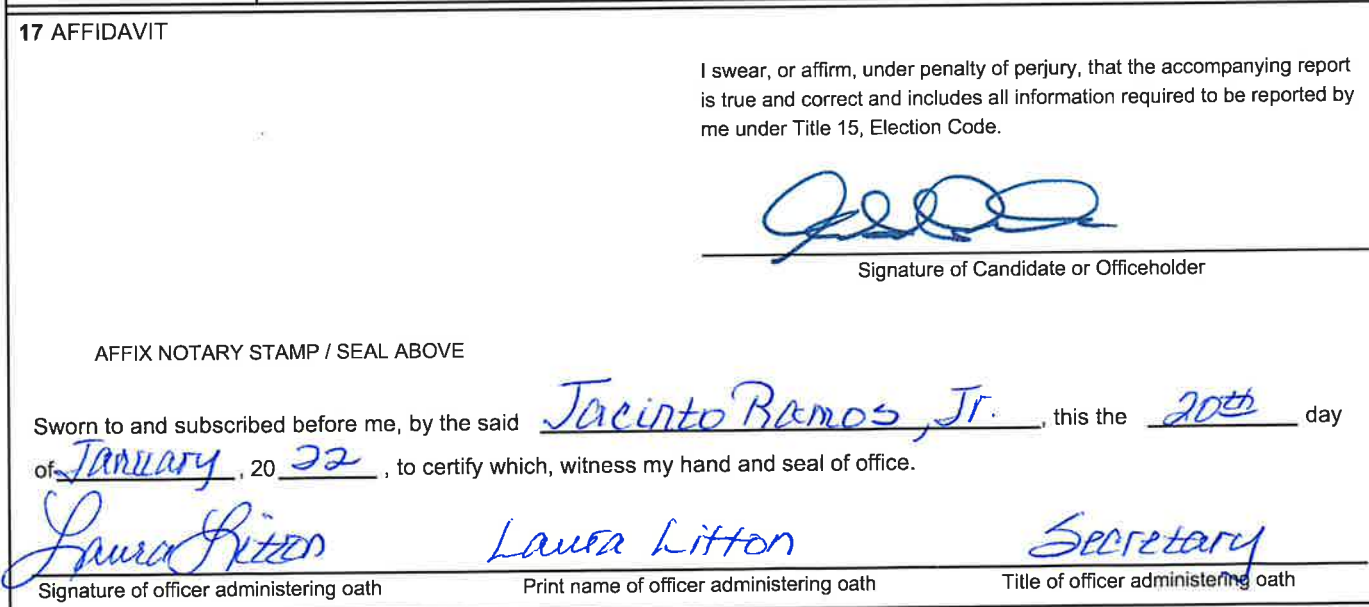 17 AFFIDAVIT
I swear, or affirm, under penalty of perjury, that the accompanying report
is true and correct and includes all information required to be reported by
me under Title 15, Election Code.
Signature of Candidate or Officeholder
AFFIX NOTARY STAMP / SEAL ABOVE
Sworn to and subscribed before me, by the said Jacinto Ramos, Jr. , this the 20th day
of January , 20 22 , to certify which, witness my hand and seal of office.
Laura Litton Laura Litton Secretary
Signature of officer administering oath Print name of officer administering oath Title of officer administering oath